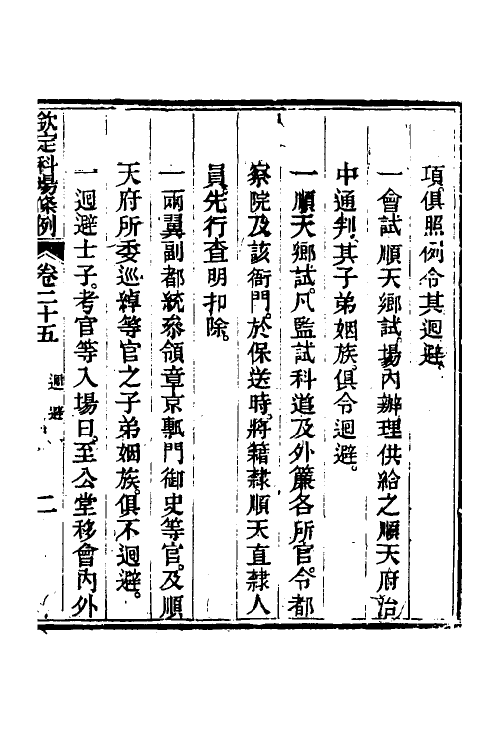 項俱照例令其迴避
一會試順天鄉試場內辦理供給之順天府治
中通判其子弟姻族俱令迴避。
一順天鄉試。凡監試科道及外簾各所官。令都
察院及該衙門。於保送時。將籍隸順天直隸人
員。先行查明扣除。
一兩翼副都統叅領章京甎門御史等官。及順
天府所委巡綽等官之子弟姻族。俱不迴避。
一迴避士子。考官等入場日。至公堂移會內外
欽定科場條例 卷二十五 迴避 二